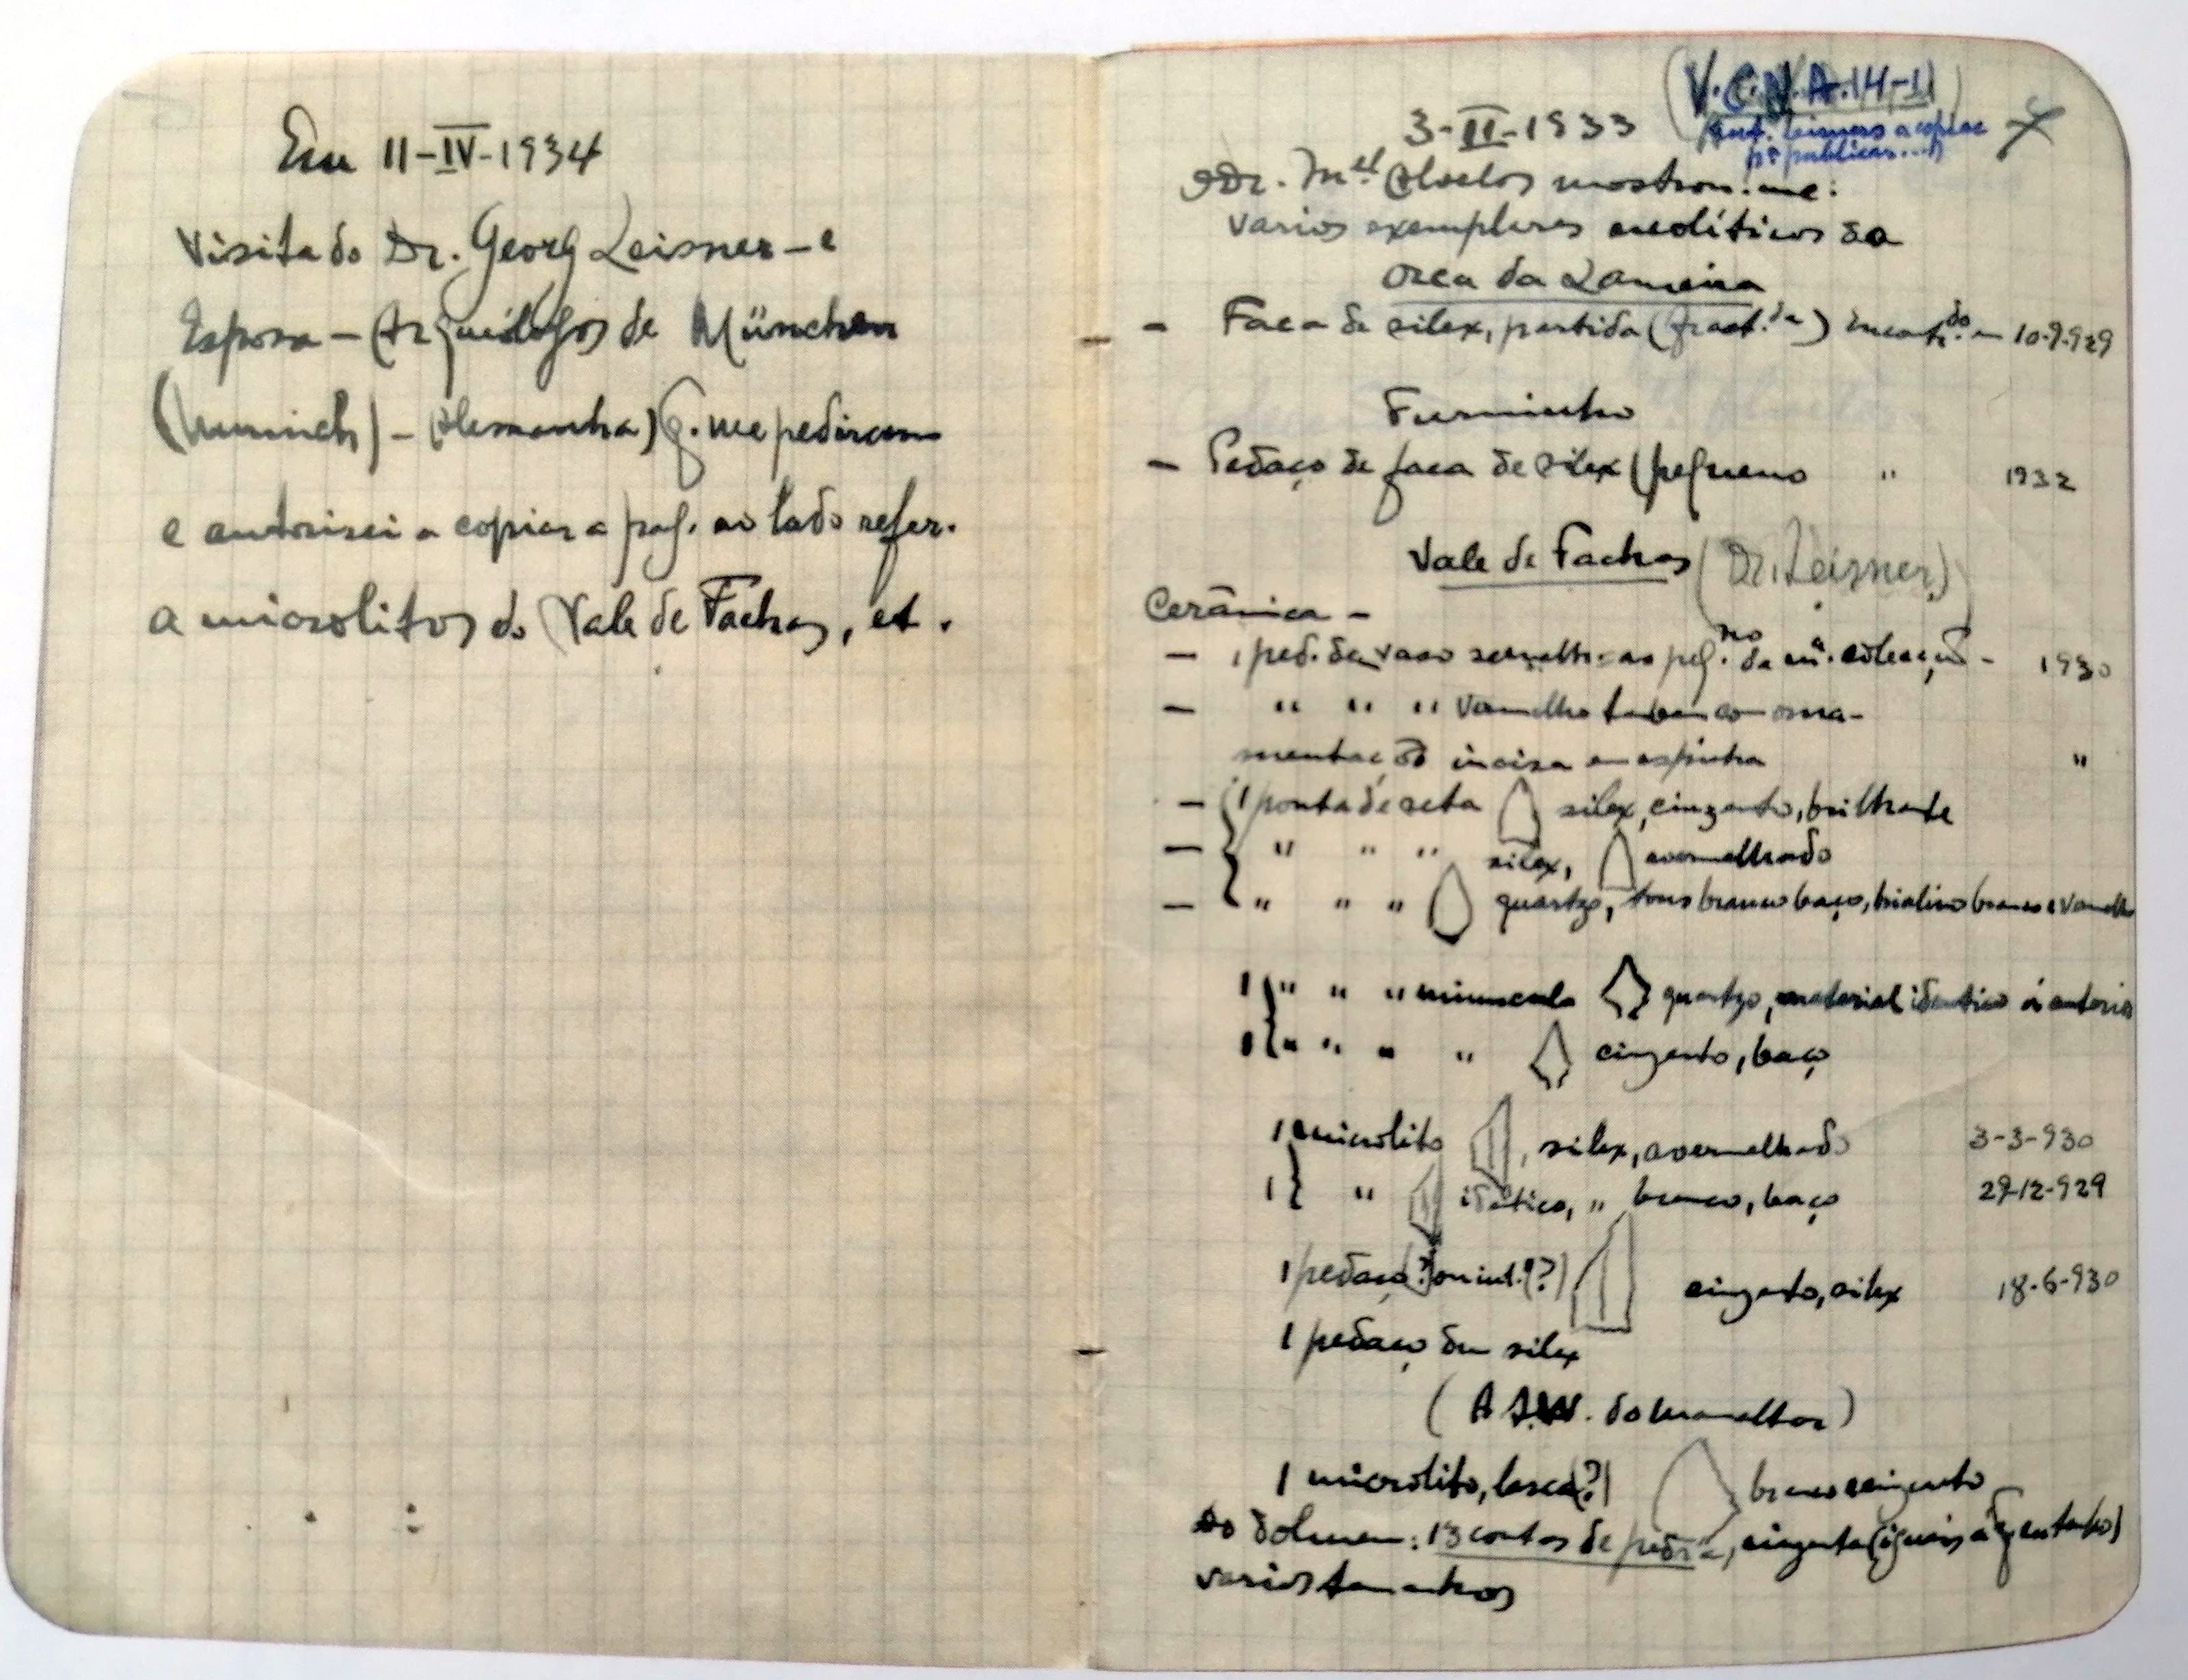 Em 11-IV-1934
Visita do Dr. Georg Leisner - e
Esposa - Arqueólogos de München
(Munich) - (Alemanha) q. me pediram
e autorisei a copiar a pag. ao lado refer.
a microlitos do Vale de Fachas, et.
(V.C.N.A. 14-1)
3-II-1933
pª publicar...)
O Dr. Mel. mostrou-me:
varios exemplares neolíticos da
Orca da Lameira
- Faca de silex, partida 10-9-929
Furninho
- Pedaço de faca de silex (pequeno " 1932
Vale de Fachas (Dr. Leisner)
Cerâmica -
- 1 ped. de vaso semelh. ao peq.no da mª. coleação - 1930
- " " " vermelho tambem com orna-
mentação incisa em espinha "
- 1 ponta de seta silex, cinzento, brilhante
- " " " silex, avermelhado
- " " " quartzo, tons branco baço, hialino branco e vermelho
1 " " " minuscula quartzo, material identico á anterior
1 " " " " cinzento, baço
1 microlito, silex, avermelhado 3-3-930
1 " identico, " branco, baço 29-12-929
1 pedaço (?) ou int. (?) cinzento, silex 18-6-930
1 pedaço de silex
1 microlito, lasca (?) branco cinzento
Do dolmen: 13 contas de pedra, cinzenta (iguais ás q. eu tenho)
varios tamanhos